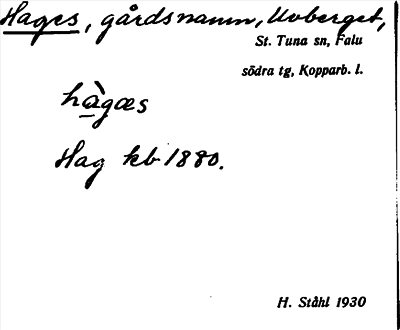 Hages, gårdsnamn, Uvberget,
St. Tuna sn, Falu
södra tg, Kopparb. l.
hàgæs
Hag kb 1880.
H. Ståhl 1930